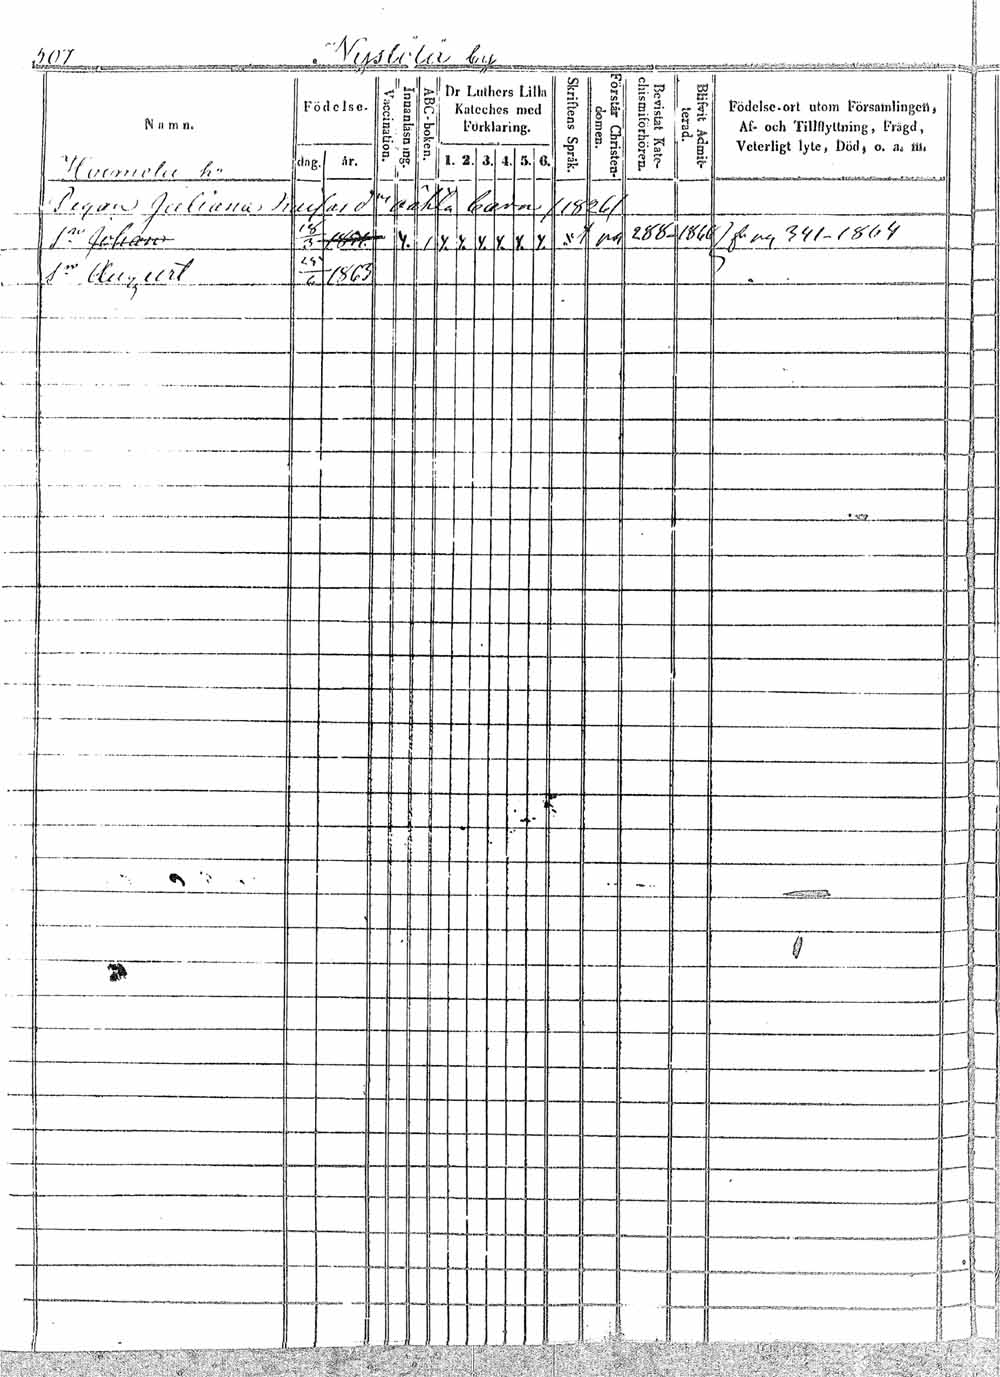 507 Nystölä by
Namn.
Födelse.
dag. år.
Vaccination.
Innanläsning.
ABC-boken.
Dr Luthers Lilla
Kateches med
Förklaring.
1. 2. 3. 4. 5. 6.
Skriftens Språk.
Förstår Christen-
domen.
Bevistat Kate-
chismiförhören.
Blifvit Admit-
terad.
Födelse-ort utom Församlingen,
Af- och Tillflyttning, Frägd,
Veterligt lyte, Död, o. a. m.
Pigan Juliana oäkta barn /1826/
Sn Johan 18/3 288- 1860 341-1864
Sn August 6 1863